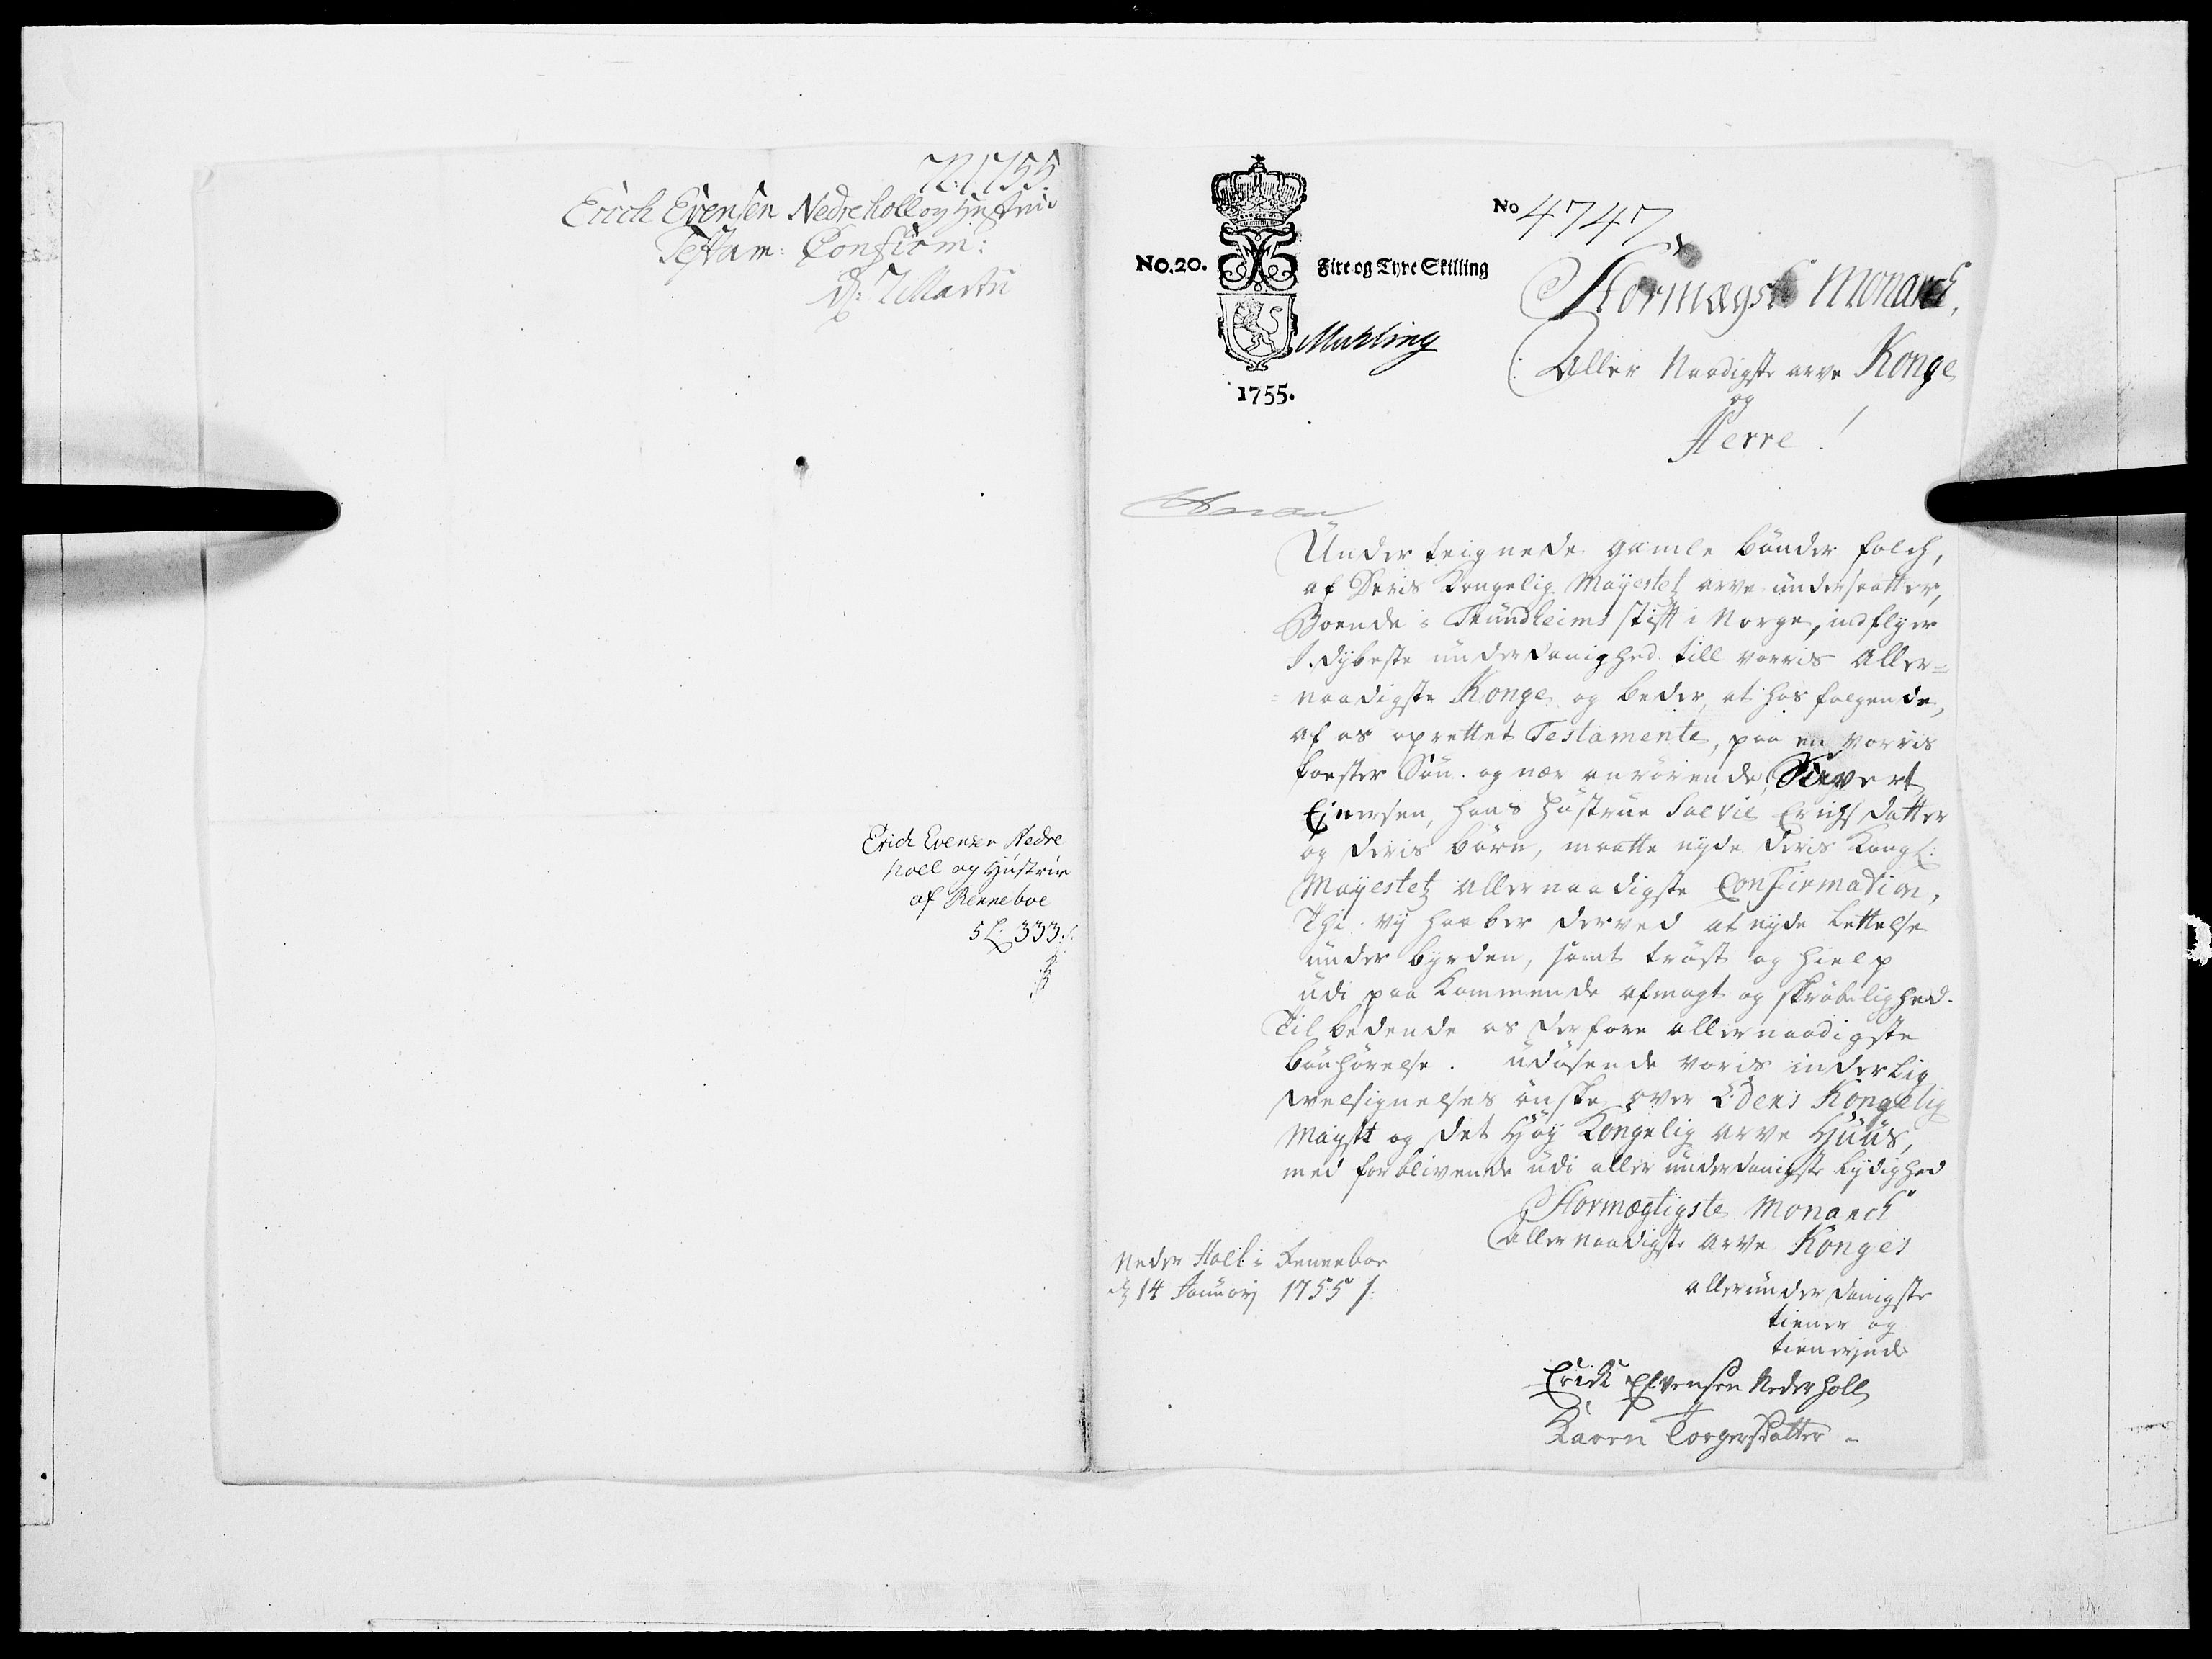 72: 1755.
Erich Evensen Nedreholl og Hustrue
Testam: Confirm:
d: 7 Martii
Erich Evensen Nedre
holl og Hustrue
af Renneboe
5 L: 333.
No. 20.
Fire og Tyve Skilling
No 4747
1755.
Stormægst Monarch,
Aller Naadigste arve Konge
og
Herre!
Under teignede gamle bønder folch,
af Deris Kongelig Mayestetz arve undersaatter,
Boende i Trundheims stift i Norge, indflyer
I dybeste underdanighed till vorris Aller=
=naadigste Konge og beder, at hos følgende,
af os oprettet Testamente, paa en vorris
søster Søn og nær anrørende, Sivert
Ejnersen, hans Hustrue Solvie Erichs datter
og deris børn, maatte nyde Deris Kongl:
Mayestetz allernaadigste Confirmation,
Thi vy haaber derved at nyde Lettelse
under byrden, samt trøst og hielp
udi paa kommende afmagt og skrøbelighed.
Til bedende os derfore allernaadigste
bønhørelse. udøsende voris inderlig
velsignelses ønske over Eders Kongelig
Mayst og det Høy Kongelig arve Huus,
med forblivende udi aller underdanigste lydighed
Stormægtigste Monarch
allernaadigste arve Konges
Neder Holl i Renneboe
d 14 Januarj 1755
allerunderdanigste
tiener og
tienerinde
Erick Evensen Nederholl
Karen Torgersdatter